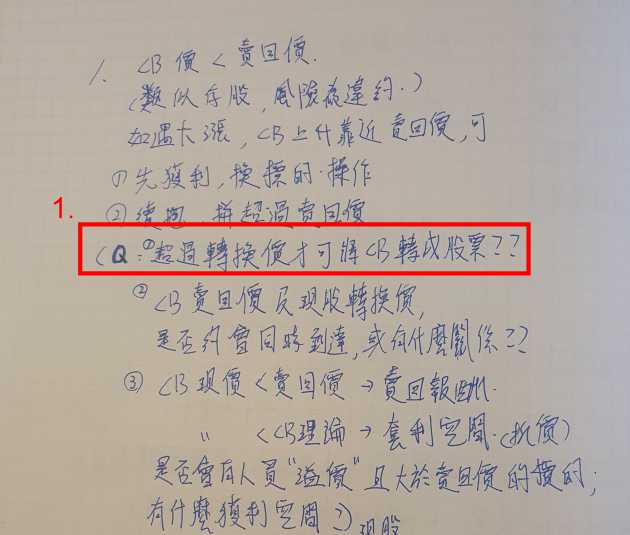 1. CB價<賣回價.
(類似存股,風險為違約.)
如遇大漲,CB上升靠近賣回價,可
①先獲利,換標的操作
②續抱,拼超過賣回價
1.
(Q:①超過轉換價才可將CB轉成股票??
②CB賣回價及現股轉換價,
是否約會同時到達,或有什麼關係??
③CB現價<賣回價→賣回報酬.
" <CB理論→套利空間.(折價)
是否會有人買"溢價"且大於賣回價的標的;
有什麼獲利空間?)
現股